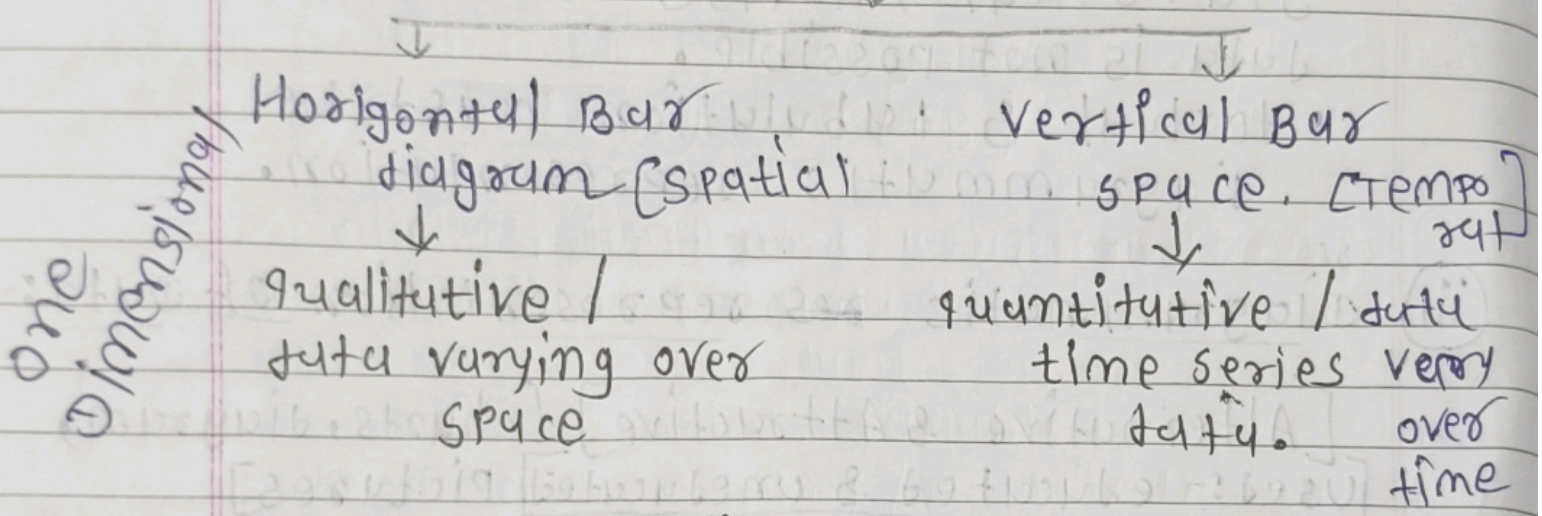 One
Dimensional
Horizontal Bar
diagram [spatial
↓
qualitative /
data varying over
space
Vertical Bar
space. [Tempo
ral]
↓
quantitative / data
time series very
data. over
time